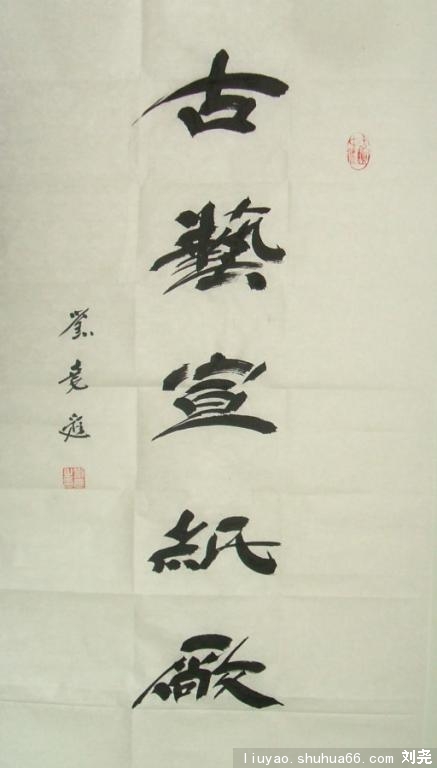 古藝宣紙廠
劉堯
liuyao.shuhua66.com 刘尧